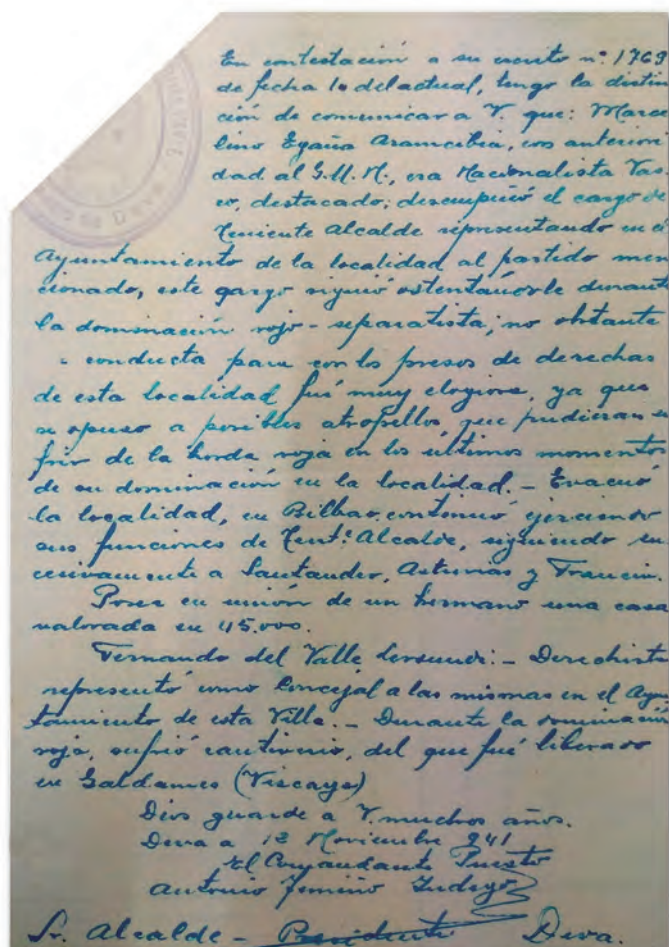 En contestación a su escrito nº 1769
de fecha 10 del actual, tengo la distin
ción de comunicar a V. que: Marce
lino Egaña Aramcibia, con anterior
dad al G.M.N., era Nacionalista Vas
co, destacado; desempeñó el cargo de
Teniente Alcalde representando en el
Ayuntamiento de la localidad al partido men
cionado, este cargo siguió ostentándole durant
la dominación rojo-separatista; no obstante
conducta para con los presos de derechas
de esta localidad fué muy elogiosa, ya que
se opuso a posibles atropellos, que pudieran s
frir de la horda roja en los últimos momentos
de su dominación en la localidad. - Evacuó
la localidad, en Bilbao continuó ejerciendo
sus funciones de Tent: Alcalde, siguiendo su
cesivamente a Santander, Asturias y Francia.
Posee en unión de un hermano una casa
valorada en 45.000.
Fernando del Valle Lersundi: - Derechista
representó como Concejal a las mismas en el Ayu
tamiento de esta Villa. - Durante la dominación
roja, sufrió cautiverio, del que fué liberado
en Galdames (Viscaya)
Dios guarde a V. muchos años.
Deva a 12 Noviembre 941
El Comandante Puesto
Antonio
Sr. Alcalde - Presidente Deva.